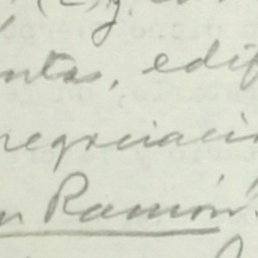 ntas, edif
negociació
n Ramón.